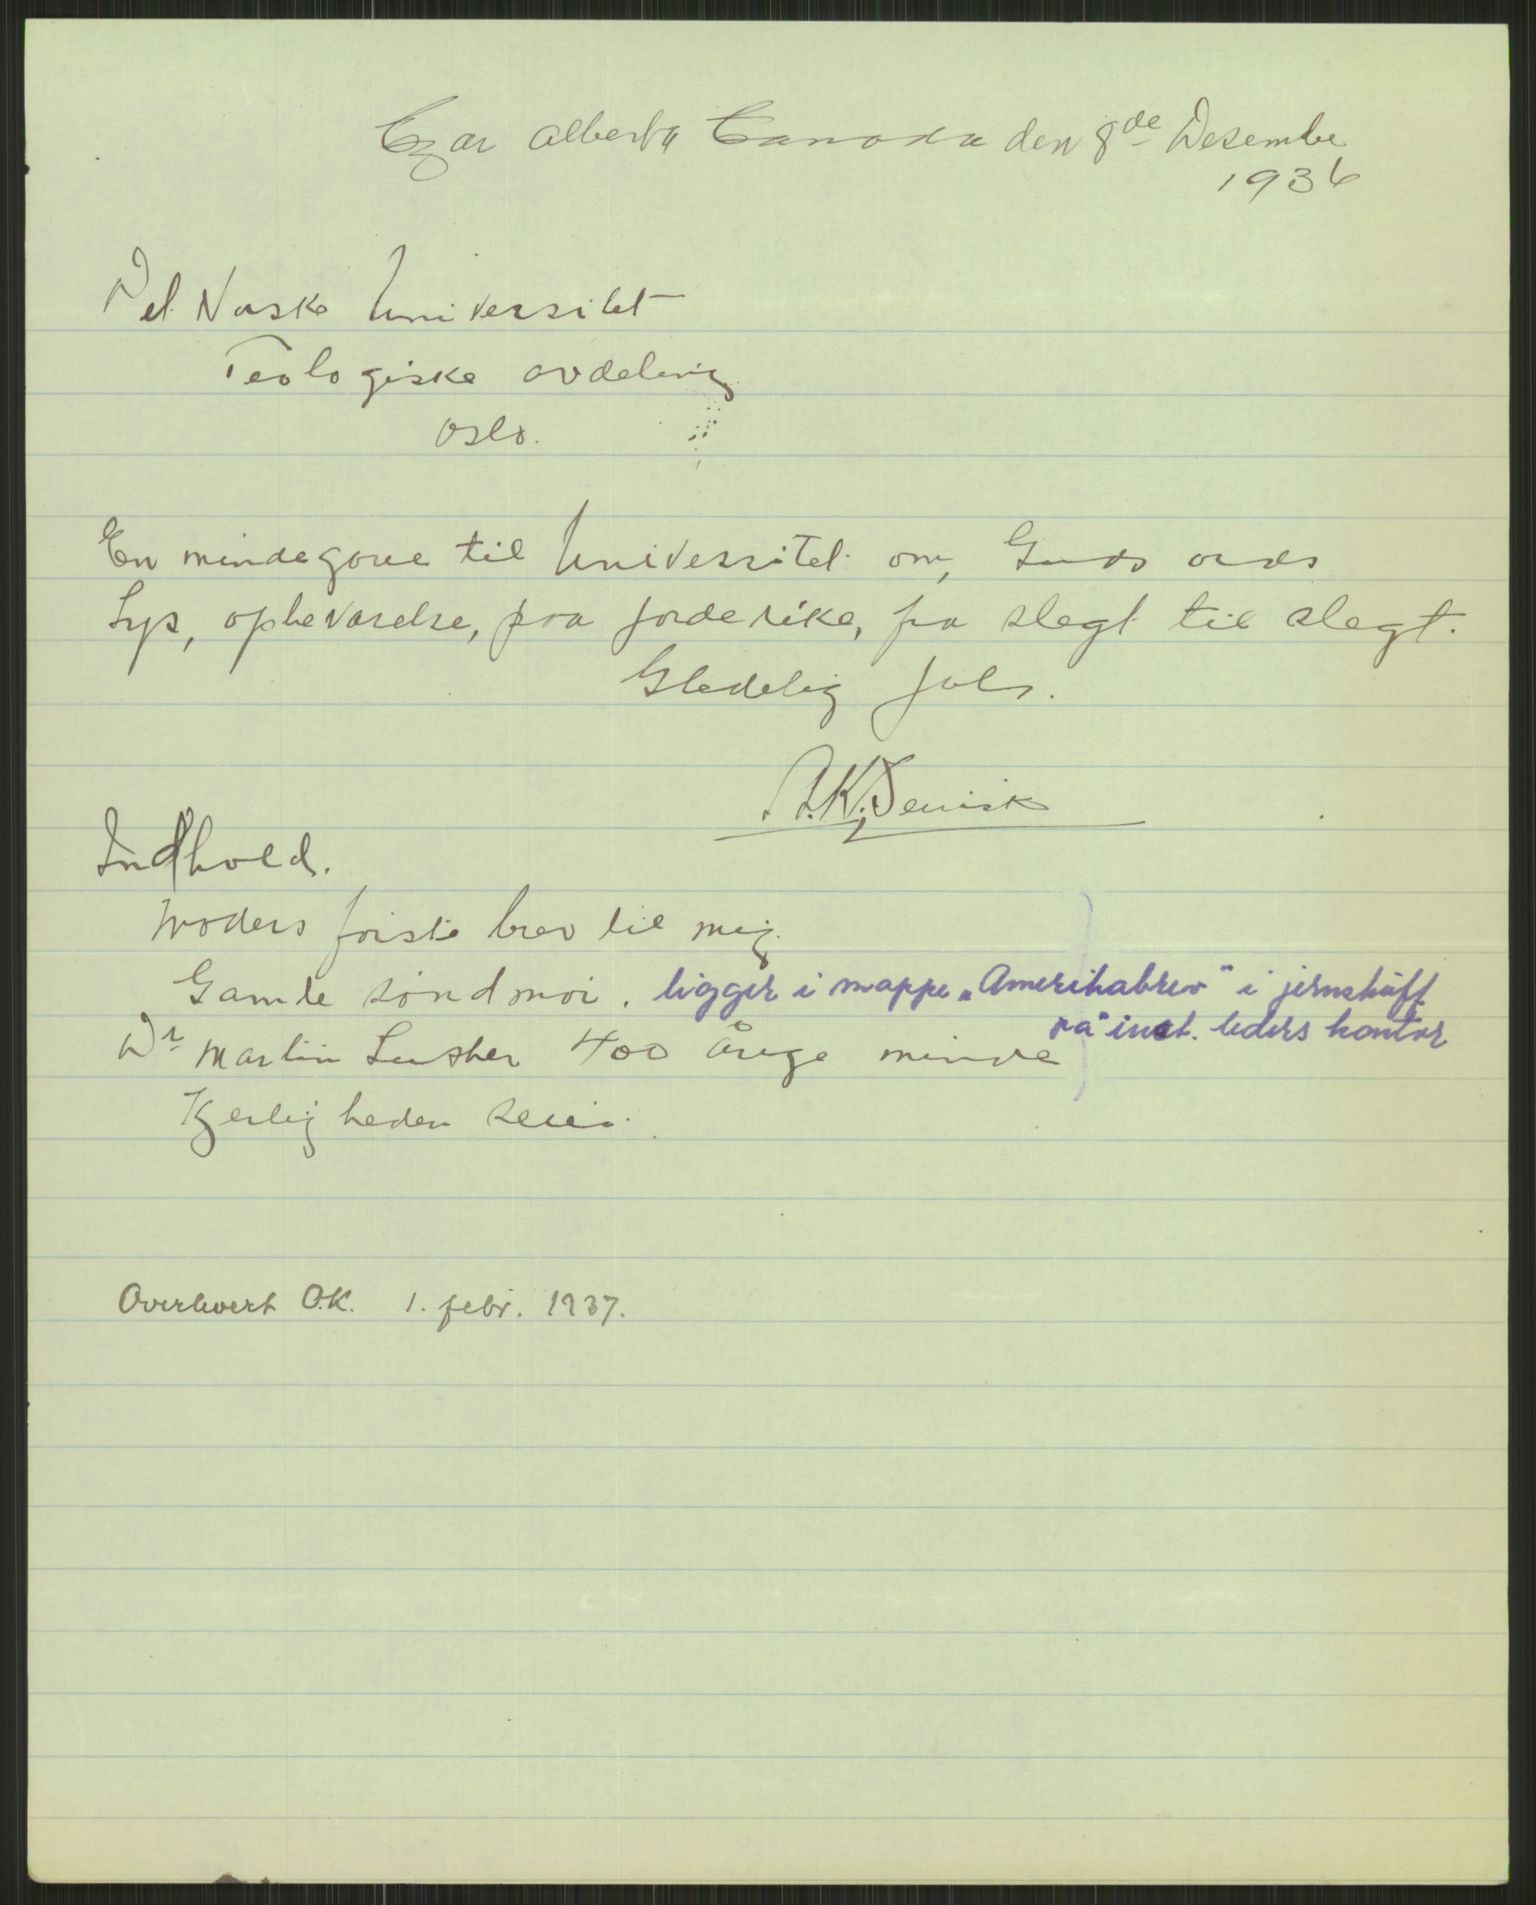 Czar Alberta Canada den 8de Desembe
1936
Det Norske Universitet
Teologiske avdeling
Oslo.
En mindegave til Universitet om, Guds ords
Lys, opbevarelse, paa jorderike, fra slegt til slegt.
Gledelig Jols.
A.K.
Indhold.
Moders förste brev til mig.
Gamle söndmör. ligger i mappe „Amerikabrev" i jernskuff
på inst. leders kontor
Dr Martin Luther 400 Årige minde
Kjerligheden seier.
Overlevert O.K. 1. febr. 1937.